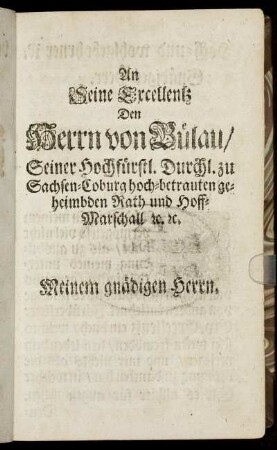 An
Seine Excellentz
Den
Herrn von Bülau/
Seiner Hochfürstl. Durchl. zu
Sachsen-Coburg hoch-betrauten ge-
heimbden Rath und Hoff-
Marschall ꝛc. ꝛc.
Meinem gnädigen Herrn.